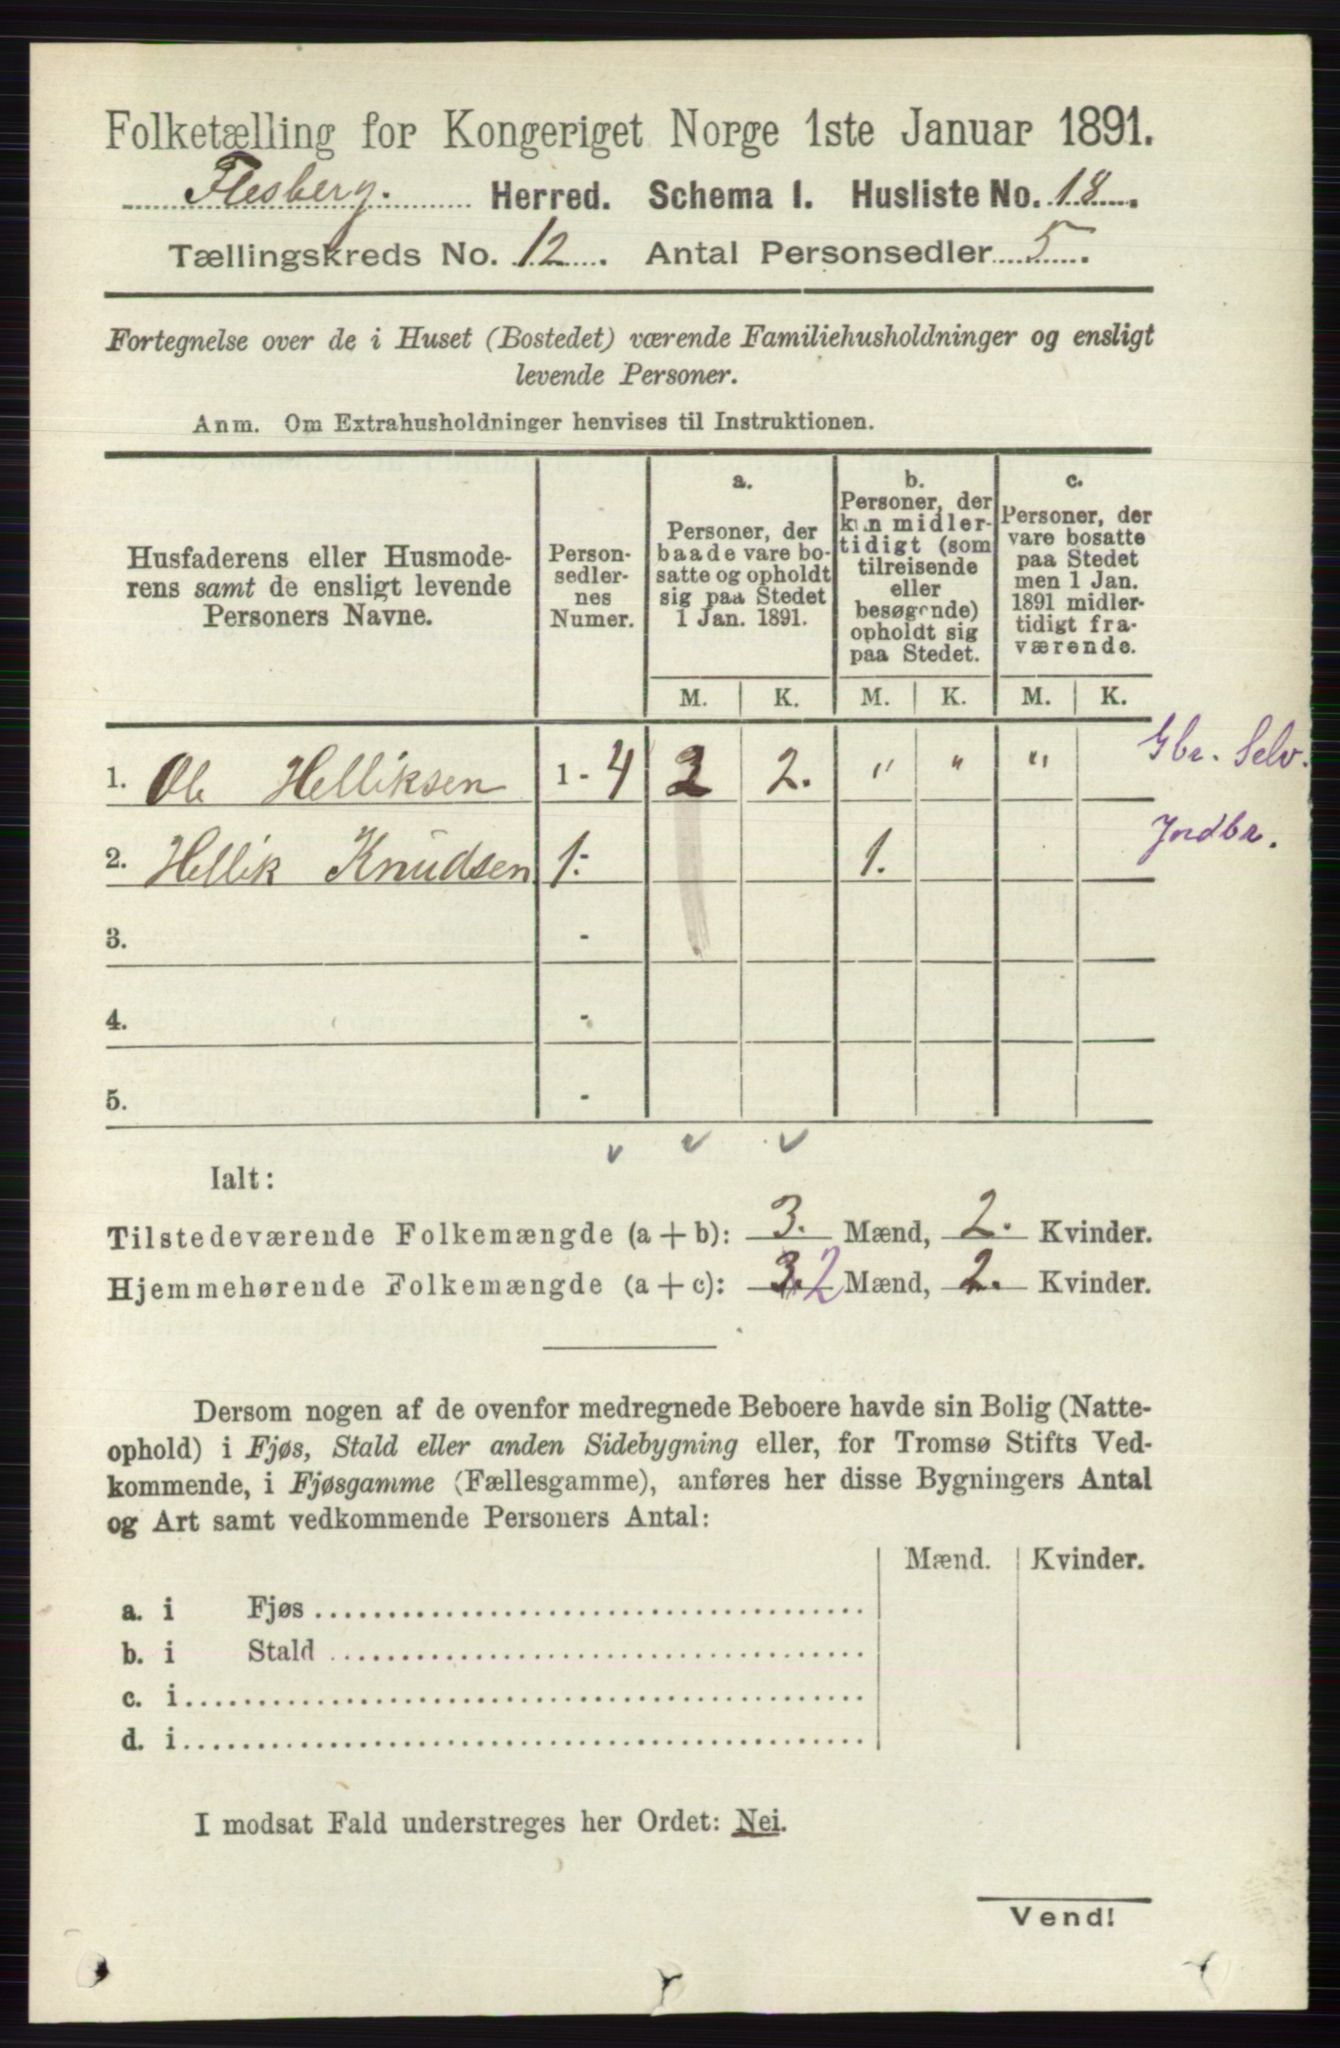 Folketælling for Kongeriget Norge 1ste Januar 1891.
Flesberg. Herred. Schema I. Husliste No. 18.
Tællingskreds No. 12. Antal Personsedler 5.
Fortegnelse over de i Huset (Bostedet) værende Familiehusholdninger og ensligt
levende Personer.
Anm. Om Extrahusholdninger henvises til Instruktionen.
Husfaderens eller Husmode-
rens samt de ensligt levende
Personers Navne.
Person-
sedler-
nes
Numer.
a.
Personer, der
baade vare bo-
satte og opholdt
sig paa Stedet
1 Jan. 1891.
b.
Personer, der
kun midler-
tidigt (som
tilreisende
eller
besøgende)
opholdt sig
paa Stedet.
c.
Personer, der
vare bosatte
paa Stedet
men 1 Jan.
1891 midler-
tidigt fra-
værende.
M. K. M. K. M. K.
1. Ole Helliksen 1 - 4 2 2. " " " Gbr. Selv.
2. Hellik Knudsen 1. - 1. Indbr.
3. -
4. -
5. -
Ialt:
Tilstedeværende Folkemængde (a + b): 3. Mænd, 2. Kvinder.
Hjemmehørende Folkemængde (a + c): 3. 2 Mænd, 2. Kvinder.
Dersom nogen af de ovenfor medregnede Beboere havde sin Bolig (Natte-
ophold) i Fjøs, Stald eller anden Sidebygning eller, for Tromsø Stifts Ved-
kommende, i Fjøsgamme (Fællesgamme), anføres her disse Bygningers Antal
og Art samt vedkommende Personers Antal:
Mænd. Kvinder.
a. i Fjøs
b. i Stald
c. i
d. i
I modsat Fald understreges her Ordet: Nei.
Vend!